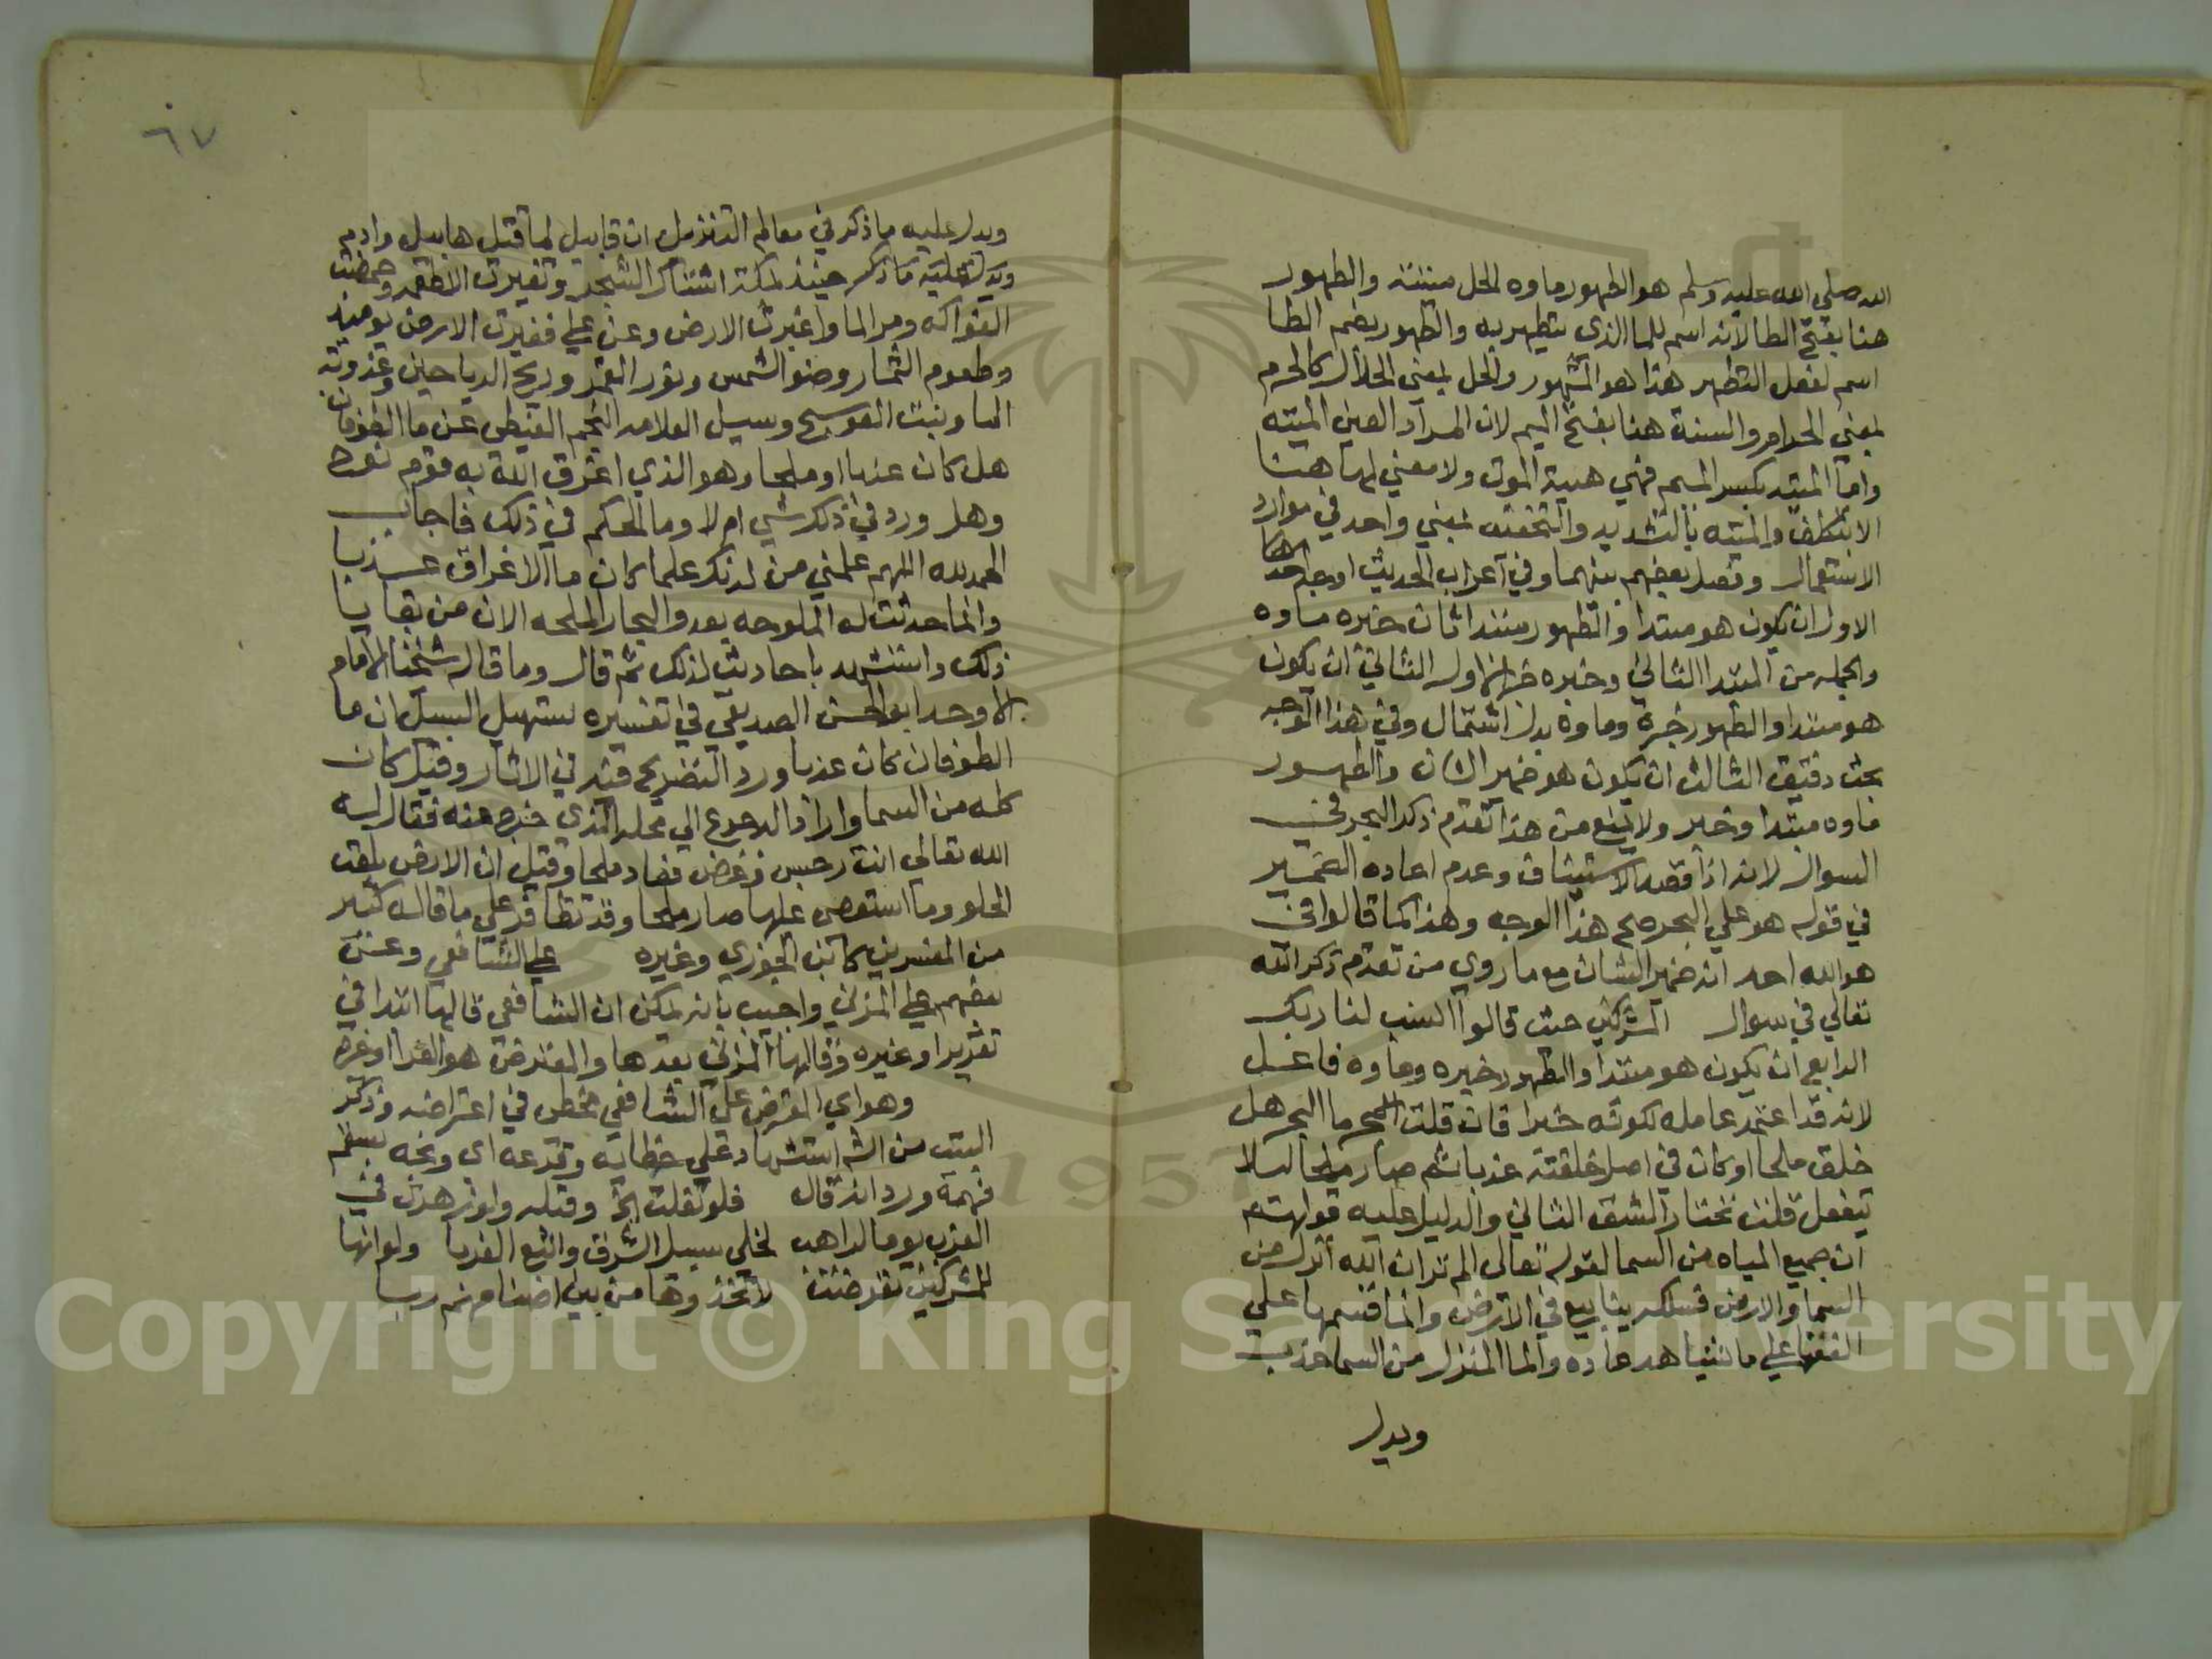 الله صلي الله عليه وسلم هو الطهور ماوه الحل ميتته والطهور
هنا بفتح الطا لانه اسم للما الذى يتطهر به والطهور بضم الطا
اسم لفعل التطهر هذا هو المشهور والحل بمعني الحلال كالحرم
بمعني الحرام والميتة هنا بفتح الميم لان المراد العين الميته
واما الميته بكسر الميم فهي هيية الموت ولا معني لها هنا
الا بتكلف والميته بالتشديد والتخفيف بمعني واحد في موارد
الاستعمال وفصل بعضهم بينهما وفي اعراب الحديث اوجه احدها
الاول ان يكون هو مبتدا والطهور مبتدا ثان خبره ماوه
والجمله من المبتدا الثاني وخبره خبر الاول الثاني ان يكون
هو مبتدا والطهور خبره وماوه بدل اشتمال وفي هذا الوجه
بحث دقيق الثالث ان يكون هو ضمير الشان والطهور
ماوه مبتدا وخبر ولا يمنع من هذا تقدم ذكر البحر في
السوال لانه اذا قصد الاستيناف وعدم اعاده الضمير
في قوله هو علي البحر صح هذا الوجه وهذا كما قالوا في
هو الله احد انه ضمير الشان مع ما روي من تقدم ذكر الله
تعالي في سوال المشركين حيث قالوا انسب لنا ربك
الرابع ان يكون هو مبتدا والطهور خبره وماوه فاعل
لانه قد اعتمد عامله لكونه خبرا فان قلت ما البحر هل
خلق ملحا او كان في اصل خلقته عذبا ثم صار ملحا ليلا
قلت نختار الشق الثاني والدليل عليه قولهم
ان جميع المياه من السما لقوله تعالى الم تر ان الله انزل من
السما والارض فسلكه ينابيع في الارض وانما قسمها
الفقها علي ما نشاهد عاده والما المنزل من السما عذب
ويدل
٦٧
ويدل عليه ما ذكر في معالم التنزيل ان قابيل لما قتل هابيل وادم
ويدل عليه ما ذكر حينئذ بمكة اشتاك الشجر وتغيرت الاطعمه وحمضت
الفواكه ومر الما واغبرت الارض وعن علي فغيرت الارض يومئذ
وطعوم الثمار وضو الشمس ونور القمر وريح الرياحين وعذوبة
الما ونبت العوسج وسيل العلامه النجم الغيطي عن ما الطوفان
هل كان عذبا او ملحا وهو الذي اغرق الله به قوم نوح
وهل ورد في ذكر شي ام لا وما الحكم في ذلك فاجاب
الحمد لله اللهم علمني من لدنك علما كان ما الاغراق عذبا
وانما حدثت له الملوحه بعد والبحار الملحه الان من بقايا
ذلك واستشهد باحاديث لذلك ثم قال وما قاله شيخنا الامام
الاوحد ابو الحسن الصديقي في تفسيره بتسهيل السبيل ان ما
الطوفان كان عذبا ورد التصريح فيه في الاثار وقيل كان
كله من السما واراد الرجوع الي محله الذي خرج منه فقال له
الله تعالي انت رجس وغضب فعاد ملحا وقيل ان الارض بلعت
الحلو وما استعصي عليها صار ملحا وقد تظافر علي ما قاله كثير
من المفسرين كابن الجوزي وغيره علي الشافعي وعن
بعضهم علي المزني واجيب بانه يمكن ان الشافعي قالها ابتدا في
تقدير او غيره وقالها المزني بعدها والمعترض هو الفرا او غيره
وهو اي المعترض علي الشافعي مخطي في اعتراضه وذكر
البيت من استشهاد علي خطايه وقدعه اي وبخه بسقم
فهمه ورد انه قال فلو تفلت الخ وقبله ولو
الغرب يوما لراهب لخلي سبيل الشرق واتبع الغربا ولو انها
للمشركين تعرضت لاتخذوها من بين اصنامهم ربا